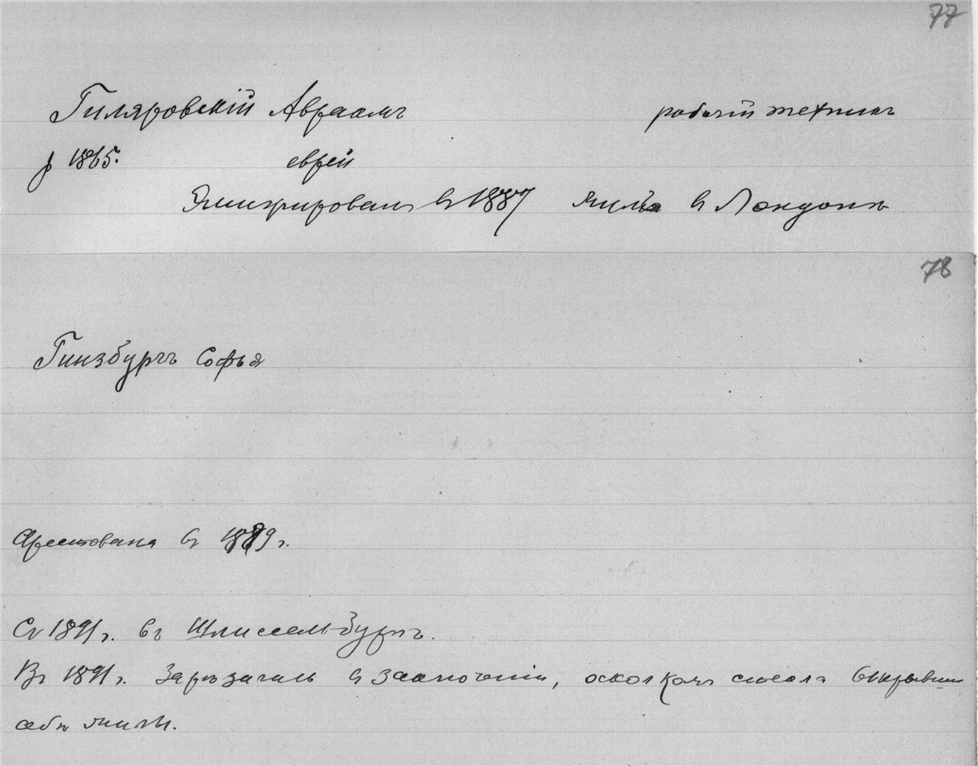 77
Гиляровскій Авраамъ рабочій техникъ
р 1865. еврей
Эмигрировалъ въ 1887 жилъ въ Лондонѣ
78
Гинзбургъ Софья
Арестована въ 1889 г.
Съ 1891 г. въ Шлиссельбургѣ.
Въ 1891 г. зарѣзалась въ заключеніи, осколкомъ стекла вскрывши
себѣ жилы.